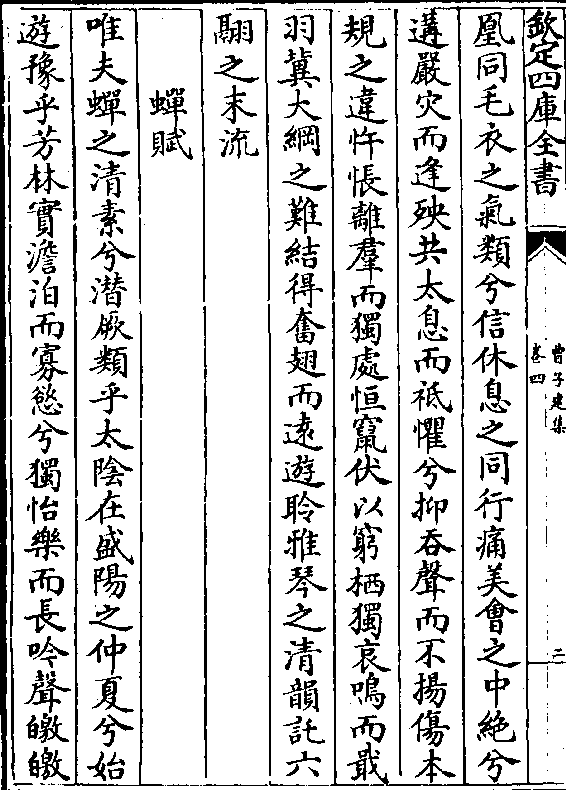 欽定四庫全書
曹子建集
卷四
二
凰同毛衣之氣類兮信休息之同行痛美會之中絶兮
遘嚴灾而逢殃共太息而祗懼兮抑吞聲而不揚傷本
規之違忤悵離羣而獨處恒竄伏以窮栖獨哀鳴而戢
羽冀大綱之難結得奮翅而遠遊聆雅琴之清韻託六
翮之末流
蟬賦
唯夫蟬之清素兮潜厥類乎太陰在盛陽之仲夏兮始
遊豫乎芳林實澹泊而寡慾兮獨怡樂而長吟聲皦皦